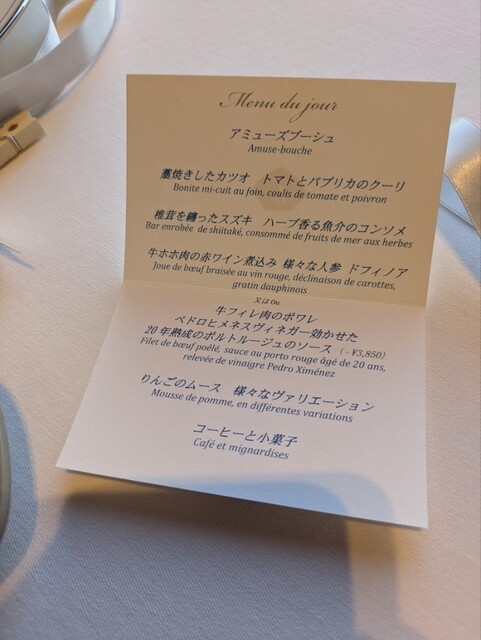 Menu du jour
アミューズブーシュ
Amuse-bouche
藁焼きしたカツオ　トマトとパプリカのクーリ
Bonite mi-cuit au foin, coulis de tomate et poivron
椎茸を纏ったスズキ　ハーブ香る魚介のコンソメ
Bar enrobée de shiitaké, consommé de fruits de mer aux herbes
牛ホホ肉の赤ワイン煮込み 様々な人参 ドフィノア
Joue de bœuf braisée au vin rouge, déclinaison de carottes,
gratin dauphinois
又は Ou
牛フィレ肉のポワレ
ペドロヒメネスヴィネガー効かせた
20年熟成のポルトルージュのソース （+¥3,850）
Filet de bœuf poêlé, sauce au porto rouge âgé de 20 ans,
relevée de vinaigre Pedro Ximénez
りんごのムース　様々なヴァリエーション
Mousse de pomme, en différentes variations
コーヒーと小菓子
Café et mignardises